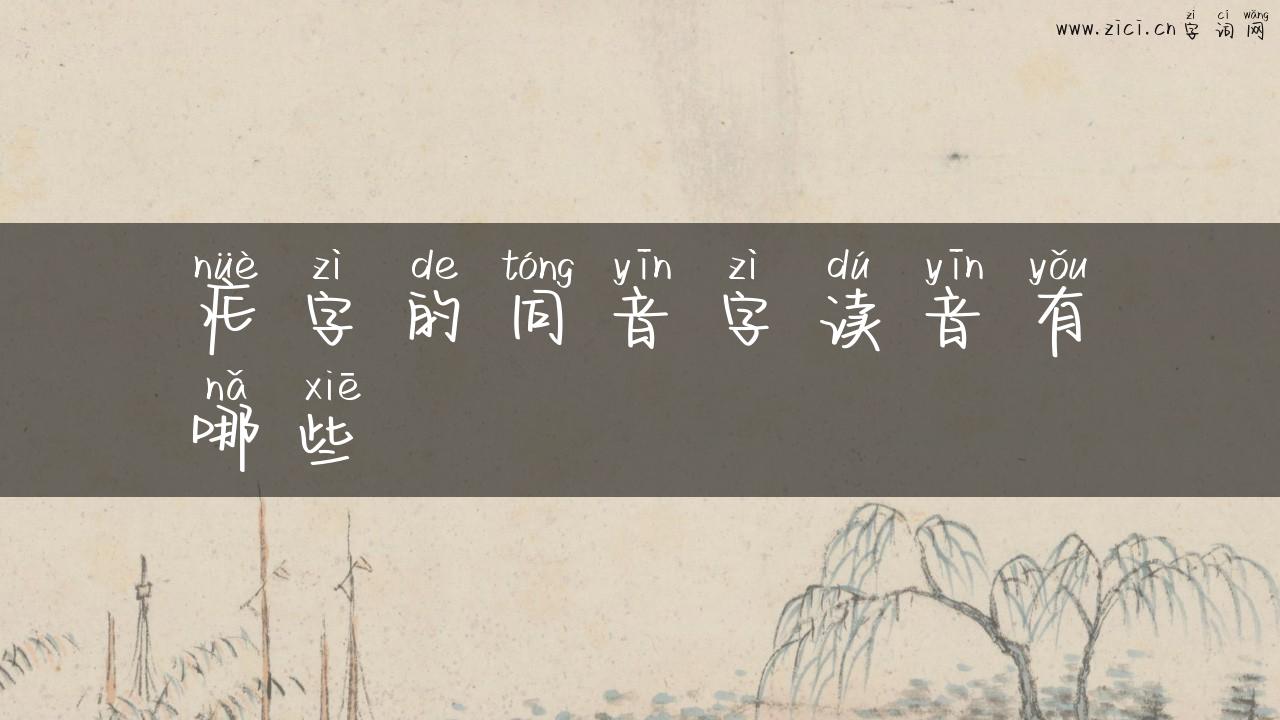 zì cí wǎng
www.zici.cn 字词网
nüè zì de tóng yīn zì dú yīn yǒu
疟字的同音字读音有
nǎ xiē
哪些